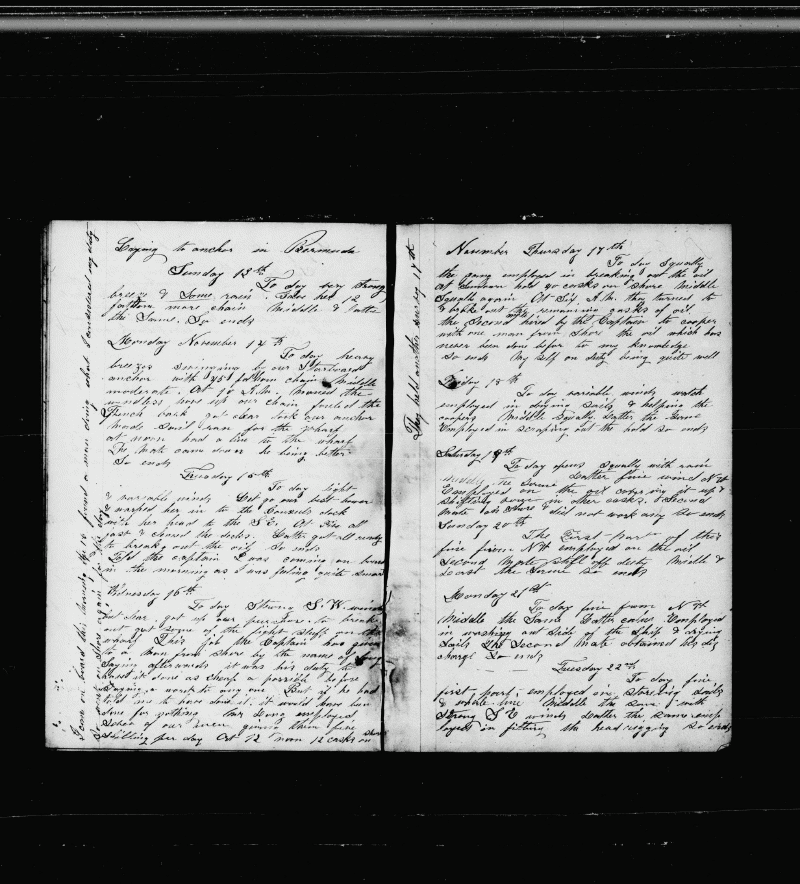 Laying to anchor in Bermuda
Sunday 13th
To day very strong
breeze & some rain. gave her 12
fathom more chain Middle & latter
the Same. So ends
Monday November 14th
To day heavy
breezes swinging by our Starboard
anchor with 75 fathom chain Middle
moderate. At 10 A.M. Maned the
windlass hove up our chain fouled the
anchor
made Sail ran for the wharf
at noon had a line to the wharf
The Mate came down he being better
So ends
Tuesday 15th
To day light
& variable winds Let go our best bower
& warped her in to the Consuls dock
with her head to the S.E. At Six all
fast & cleared the decks. Latter got all ready
to breaking out the oil So ends
Told the captain I was coming on board
in the morning as I was feeling quite smart
Wednesday 16th
To day Strong S.W. winds
but clear. got up our purchase to break
out got some of the light stuff on the
wharf This job the Captain has given
to a man from shore by the name of
Saying afterwards it was his duty to
have it done as cheap a possible before
Saying a word to any one But if he had
told me to have done it, it would have been
done for nothing Our Gang employed
Seven of our men given them five
shilling per day At 12 noon 12 casks on shore
I came on board this morning 16th found a man doing what I considered my duty
So went on shore again for the day
They held another survey 17th
November Thursday 17th
To day Squally
the gang employed in breaking out the oil
At Sundown had 90 casks on shore Middle
Squally again At Six A.M. they turned to
& broke out the remaining casks of oil
the Second mate hired by the Captain to cooper
with one man from Shore the oil which has
never been done before to my knowledge
So ends My self on duty being quite well
Friday 18th
To day variable winds watch
employed in drying sails & helping the
coopers Middle Squally latter the Same
Employed in scraping out the hold So ends
Saturday 19th
To day opens Squally with rain
Middle the Same Latter fine wind N.W.
Employed on the oil coopering it up &
Shifting some in other casks. Second
Mate on shore & did not work any So ends
Sunday 20th
The First part of this
fine from N.W. employed on the oil
Second Mate still off duty Middle &
Latter the Same So ends
Monday 21st
To day fine from N.W.
Middle the Same Latter calm Employed
in washing out side of the Ship & drying
Sails The Second mate obtained his dis
charge So ends
Tuesday 22nd
To day fine
first part, employed in stowing Sails
& whale line Middle the same & with
Strong S.E. winds Latter the same emp
loyed in fitting the head rigging So ends